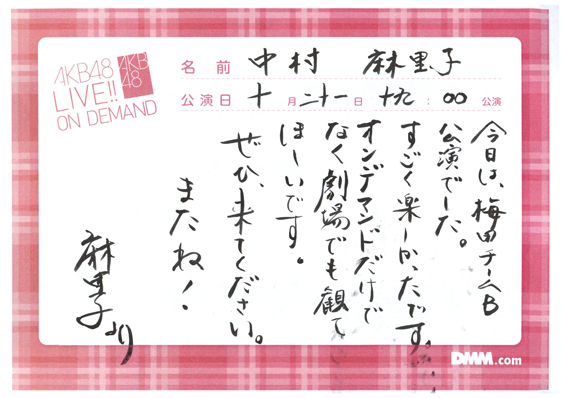 AKB48
LIVE!!
ON DEMAND
AKB
48
名前 中村 麻里子
公演日 十月二十一日 十九:00 公演
今日は、梅田チームB
公演でした。
すごく楽しかったです。
オンデマンドだけで
なく劇場でも観て
ほしいです。
ぜひ、来てください。
またね!
麻里子より
DMM.com